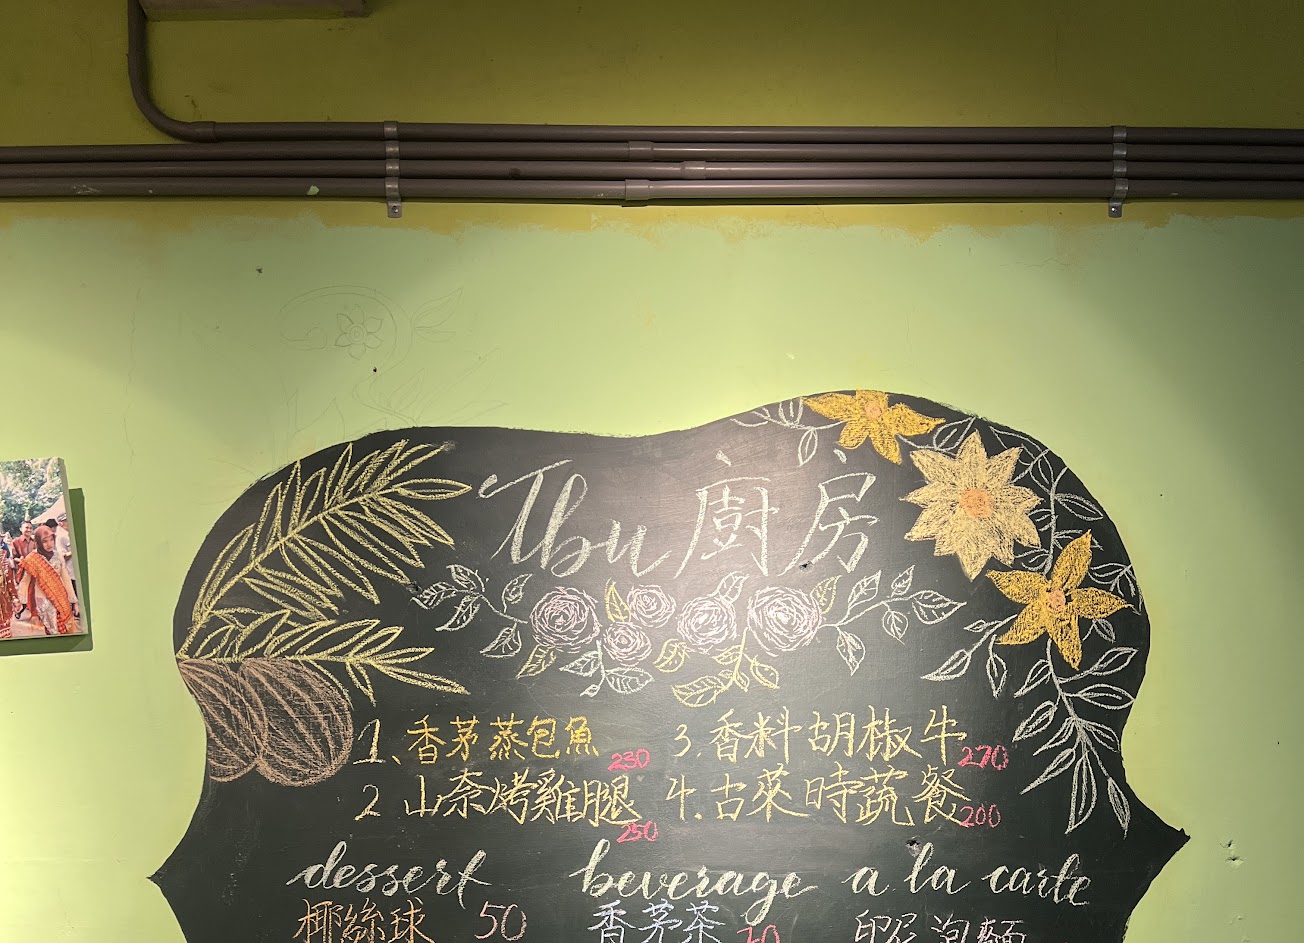 Ibu廚房
1、香茅蒸包魚 230 3.香料胡椒牛 270
2 山奈烤雞腿 250 4.古萊時蔬餐 200
dessert beverage a la carte
椰絲球 50 香茅茶 70 印尼泡麵